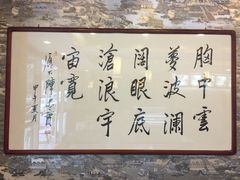 胸中雲
夢波瀾
闊眼底
滄浪宇
宙寬
甲午夏月